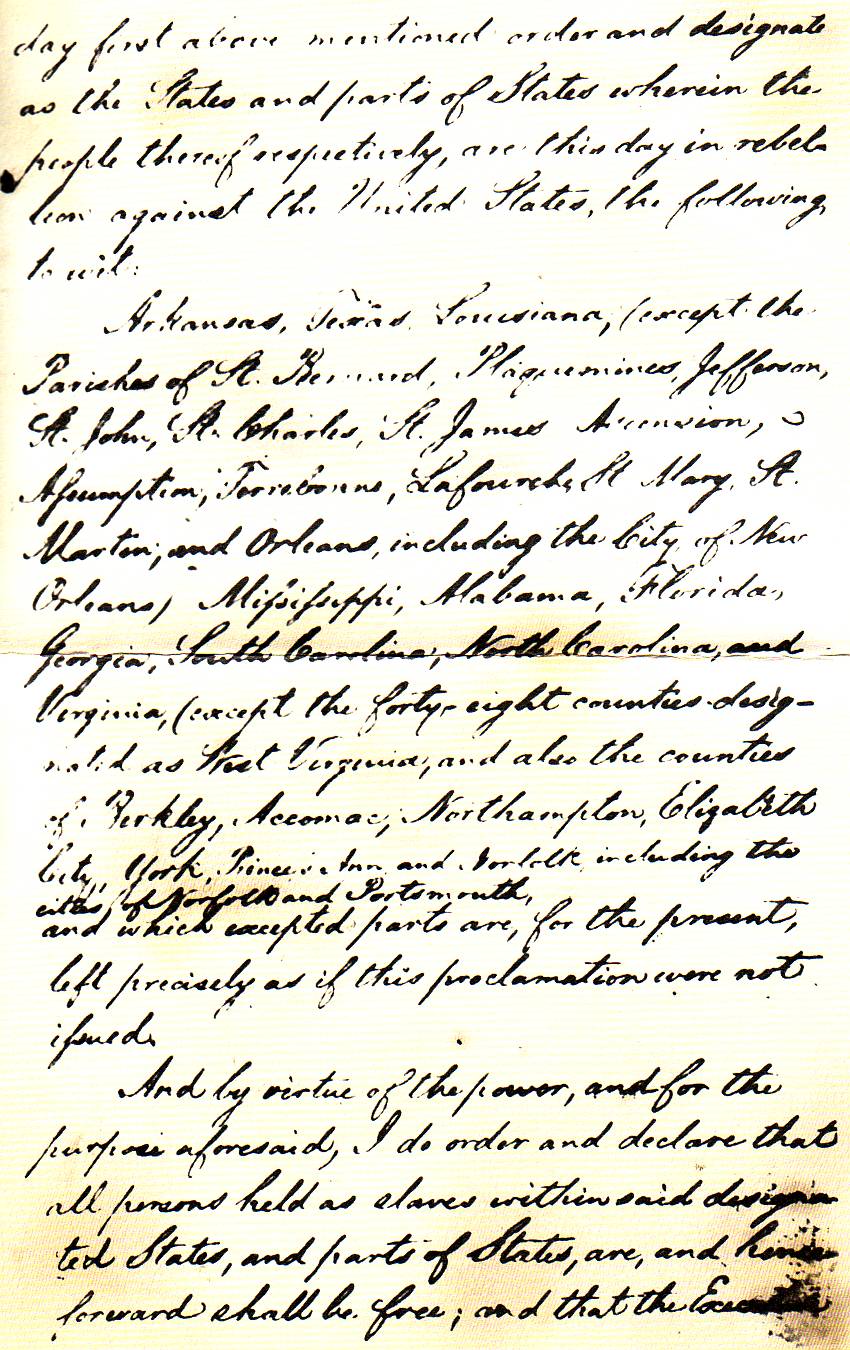 day first above mentioned order and designate
as the States and parts of States wherein the
people thereof respectively, are this day in rebel-
lion against the United States, the following,
to wit:
Arkansas, Texas, Louisiana, (except the
Parishes of St. Bernard, Plaquemines, Jefferson,
St. John, St. Charles, St. James Ascension,
Assumption, Terrebonne, Lafourche, St Mary, St.
Martin, and Orleans, including the City of New
Orleans) Mississippi, Alabama, Florida,
Georgia, South Carolina, North Carolina, and
Virginia, (except the forty-eight counties desig-
nated as West Virginia, and also the counties
of Berkley, Accomac, Northampton, Elizabeth
City, York, Princess Ann, and Norfolk, including the
cities of Norfolk and Portsmouth,
and which excepted parts are, for the present,
left precisely as if this proclamation were not
issued.
And by virtue of the power, and for the
purpose aforesaid, I do order and declare that
all persons held as slaves within said designa-
ted States, and parts of States, are, and hence-
forward shall be free; and that the Executive